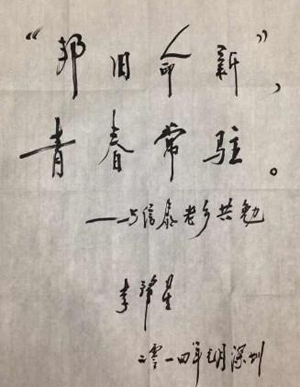 “邦旧命新”,
青春常驻。
——与老乡共勉
李肇星
二零一四年月深圳